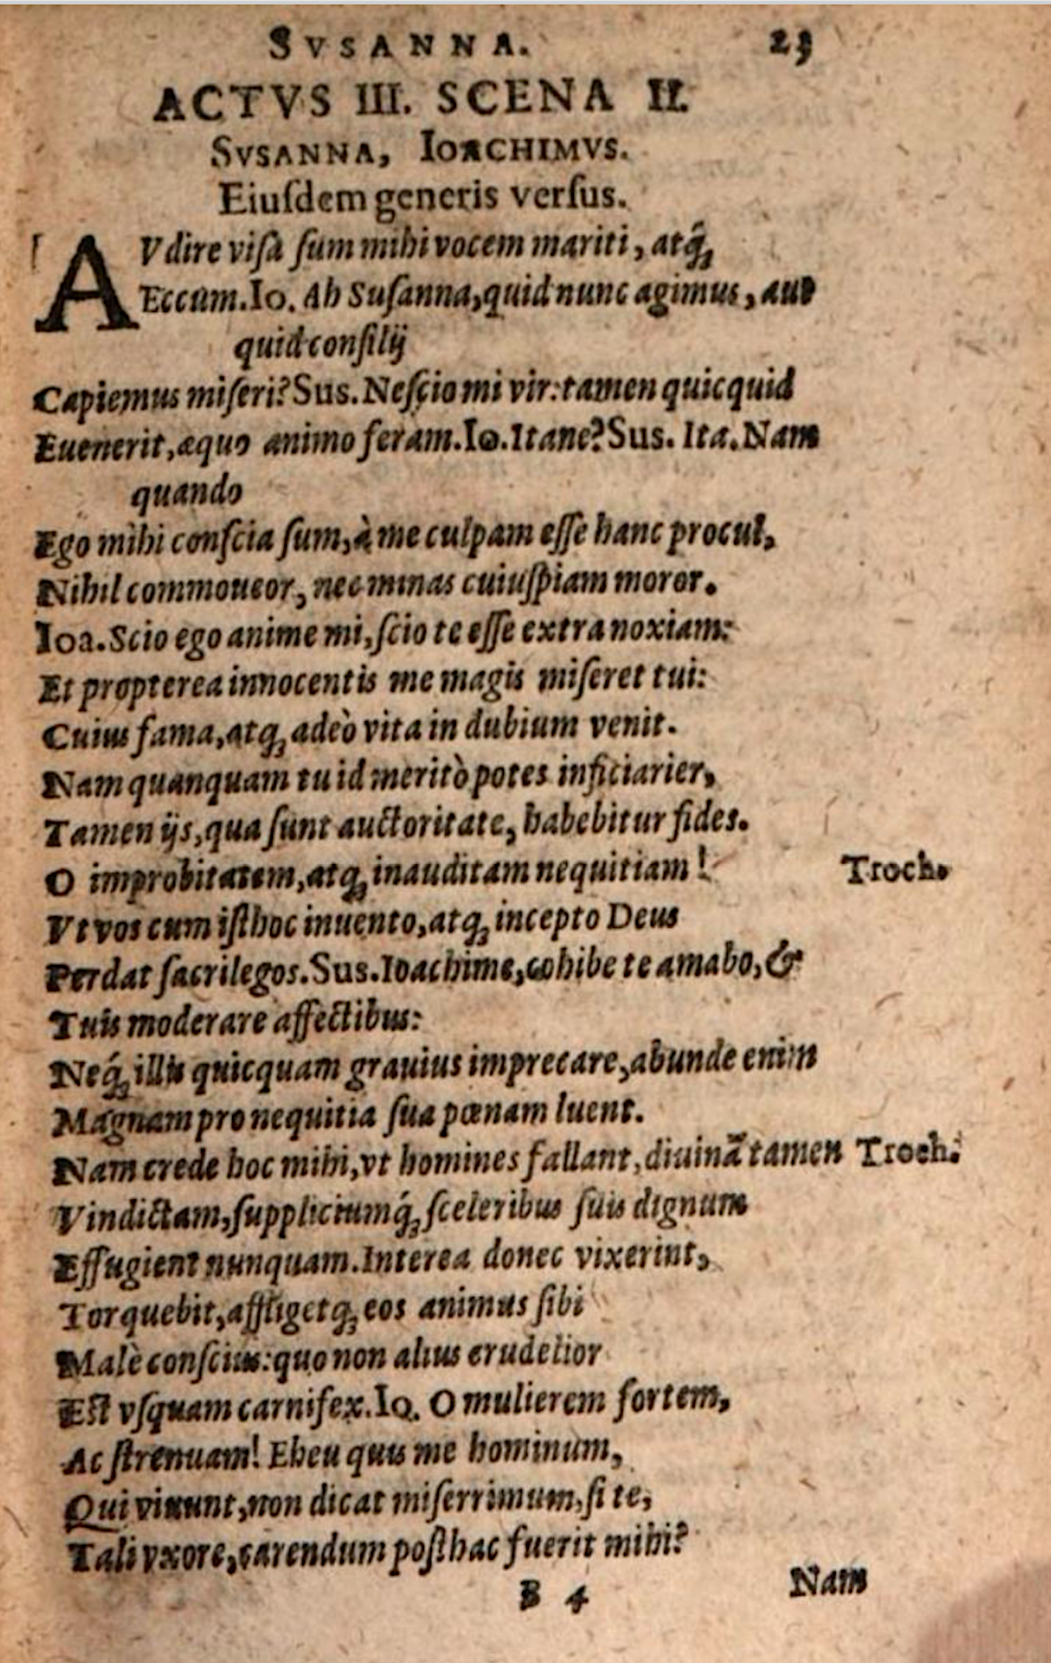 SVSANNA. 23
ACTVS III. SCENA II.
SVSANNA, IOACHIMVS.
Eiuſdem generis verſus.
AVdire viſa ſum mihi vocem mariti, atq́;
Eccum. Io. Ah Suſanna, quid nunc agimus, aut
quid conſilij
Capiemus miſeri? Sus. Neſcio mi vir: tamen quicquid
Euenerit, æquo animo feram. Io. Itane? Sus. Ita. Nam
quando
Ego mihi conſcia ſum, à me culpam eſſe hanc procul,
Nihil commoueor, nec minas cuiuſpiam moror.
Ioa. Scio ego anime mi, ſcio te eſſe extra noxiam:
Et propterea innocentis me magis miſeret tui:
Cuius fama, atq; adeò vita in dubium venit.
Nam quanquam tu id meritò potes inficiarier,
Tamen ijs, qua ſunt auctoritate, habebitur fides.
O improbitatem, atq; inauditam nequitiam! Troch.
Vt vos cum iſthoc inuento, atq; incepto Deus
Perdat ſacrilegos. Sus. Ioachime, cohibe te amabo, &
Tuis moderare affectibus:
Neq́; illis quicquam grauius imprecare, abunde enim
Magnam pro nequitia ſua pœnam luent.
Nam crede hoc mihi, vt homines fallant, diuinā tamen Troch.
Vindictam, ſuppliciumq́; ſceleribus ſuis dignum
Effugient nunquam. Interea donec vixerint,
Torquebit, affligetq; eos animus ſibi
Malè conſcius: quo non alius crudelior
Eſt vſquam carnifex. Io. O mulierem fortem,
Ac ſtrenuam! Eheu quis me hominum,
Qui viuunt, non dicat miſerrimum, ſi te,
Tali vxore, carendum poſthac fuerit mihi?
B 4 Nam